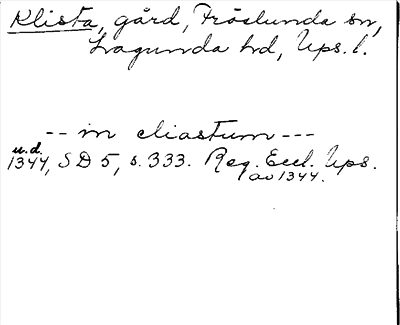 Klista, gård, Fröslunda sn,
Lagunda hd, Ups. l.
-- in cliastum ---
u.d.
1344, SD 5, s. 333. Reg. Eccl. Ups.
av 1344.